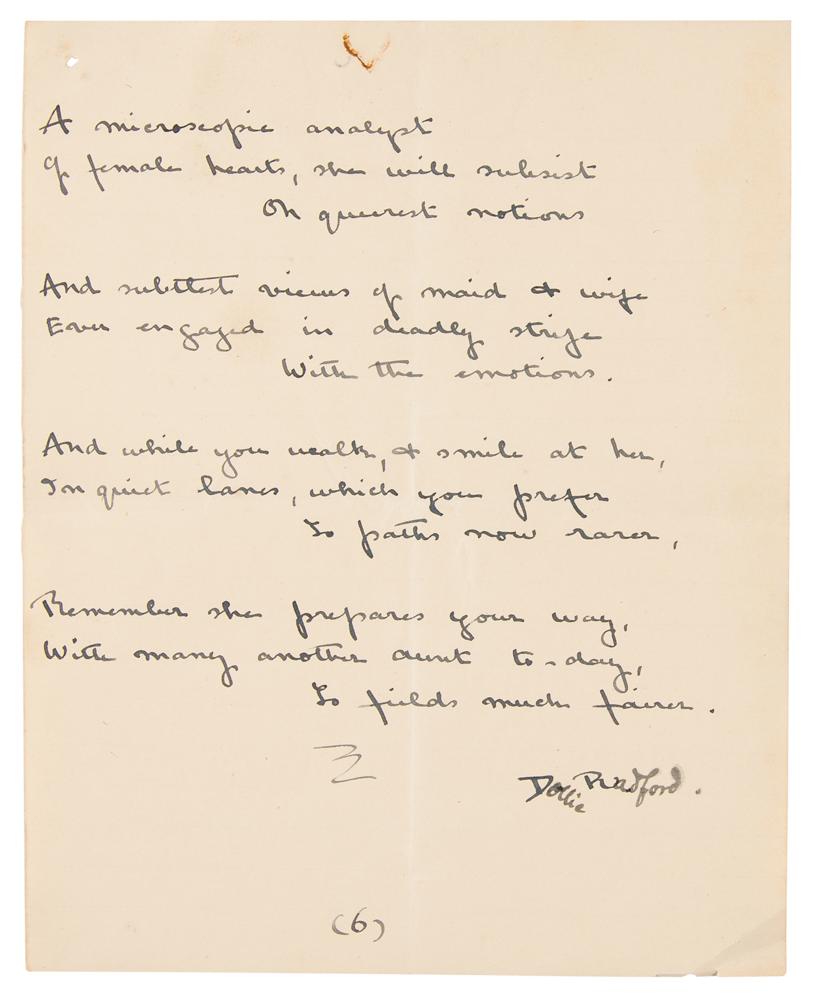 A microscopic analyst
Of female hearts, she will subsist
On queerest notions
And subtlest views of maid & wife
Ever engaged in deadly strife
With the emotions.
And while you walk, & smile at her,
In quiet lanes, which you prefer
To paths now rarer,
Remember she prepares your way,
With many another aunt to-day,
To fields much fairer.
Dollie Radford.
(6)